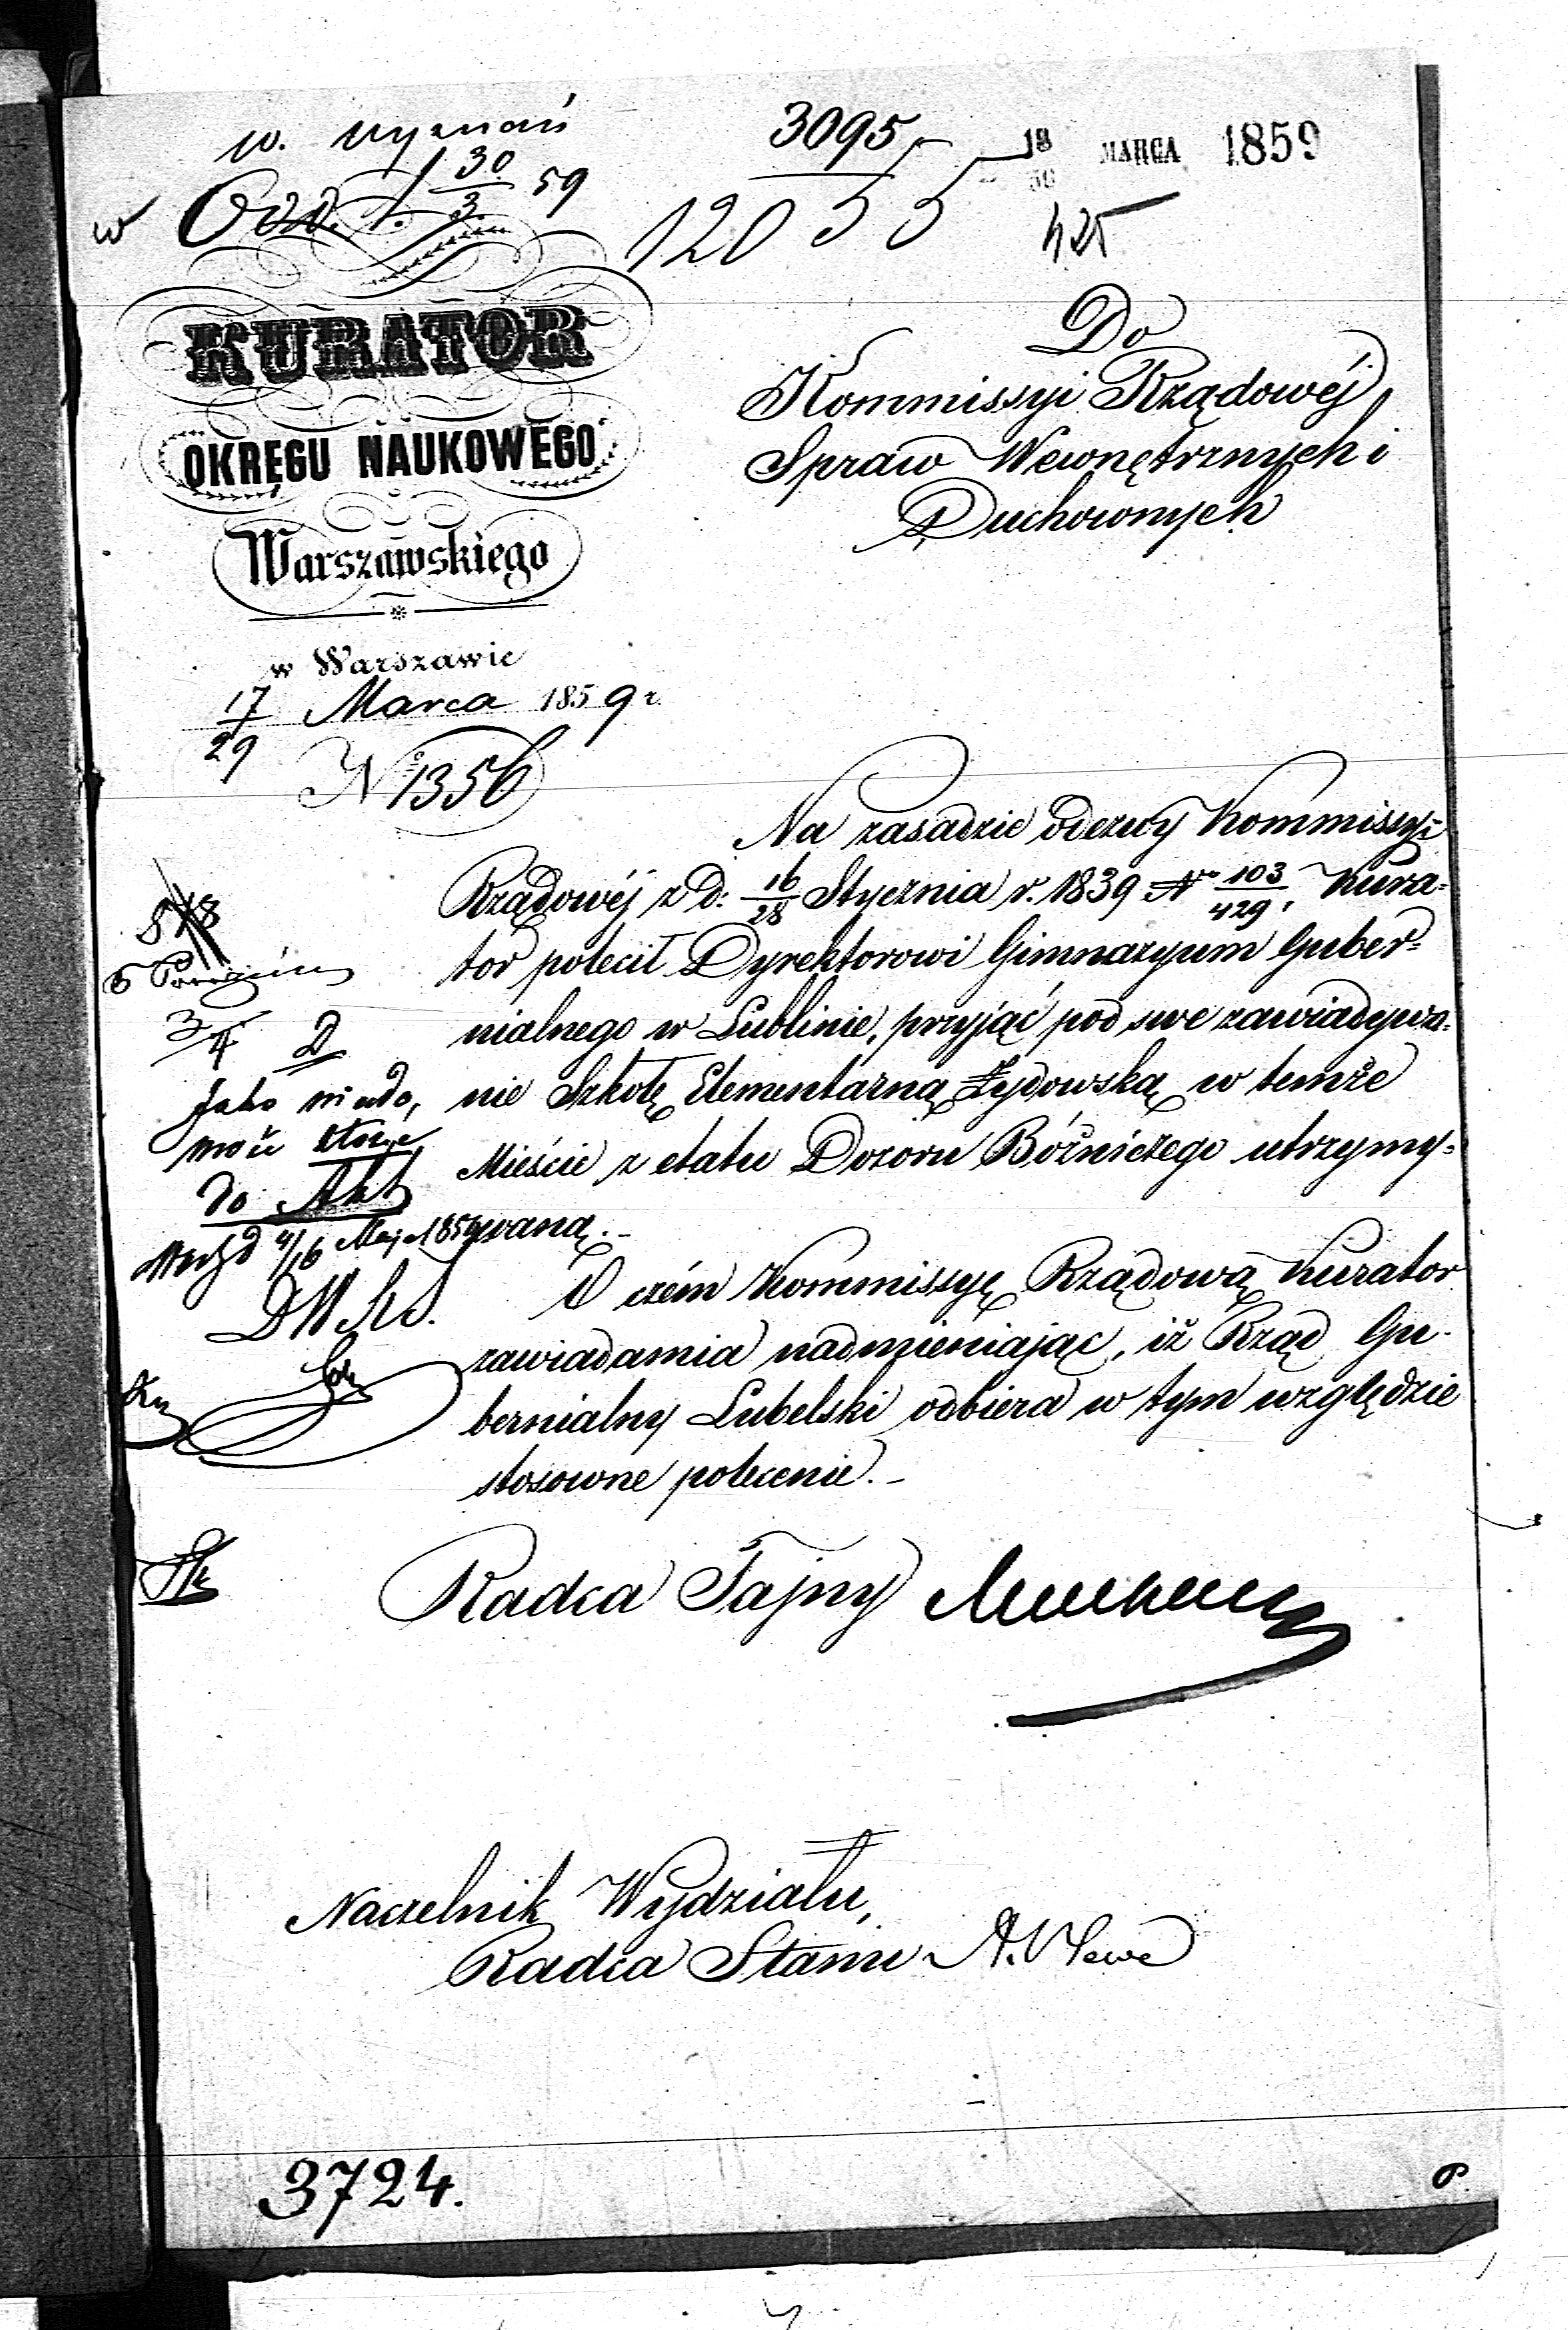 w. wyznań
3095
18/30 MARCA 1859
w Odd. 1. 30/3 59
12055
425
KURATOR
OKRĘGU NAUKOWEGO
Warszawskiego
w Warszawie
17/29 Marca 1859 r.
№ 1356
Do
Kommissyi Rządowéj
Spraw Wewnętrznych i
Duchownych
Na zasadzie odezwy Kommissyi
Rządowéj z d: 16/28 Stycznia r. 1839 No 103/429, Kura=
tor polecił Dyrektorowi Gimnazyum Guber=
nialnego w Lublinie, przyjąć pod swe zawiadywa=
nie Szkołę Elementarną Żydowską w temże
Mieście z etatu Dozoru Bóźniczego utrzymy=
waną.-
O czém Kommissyę Rządową Kurator
zawiadamia nadmieniając, iż Rząd Gu-
bernialny Lubelski odbiera w tym względzie
stosowne polecenie.-
3/4 D
może
do Akt
4/16 Maja 1859
Radca Tajny
Naczelnik Wydziału,
Radca Stanu
3724.
6